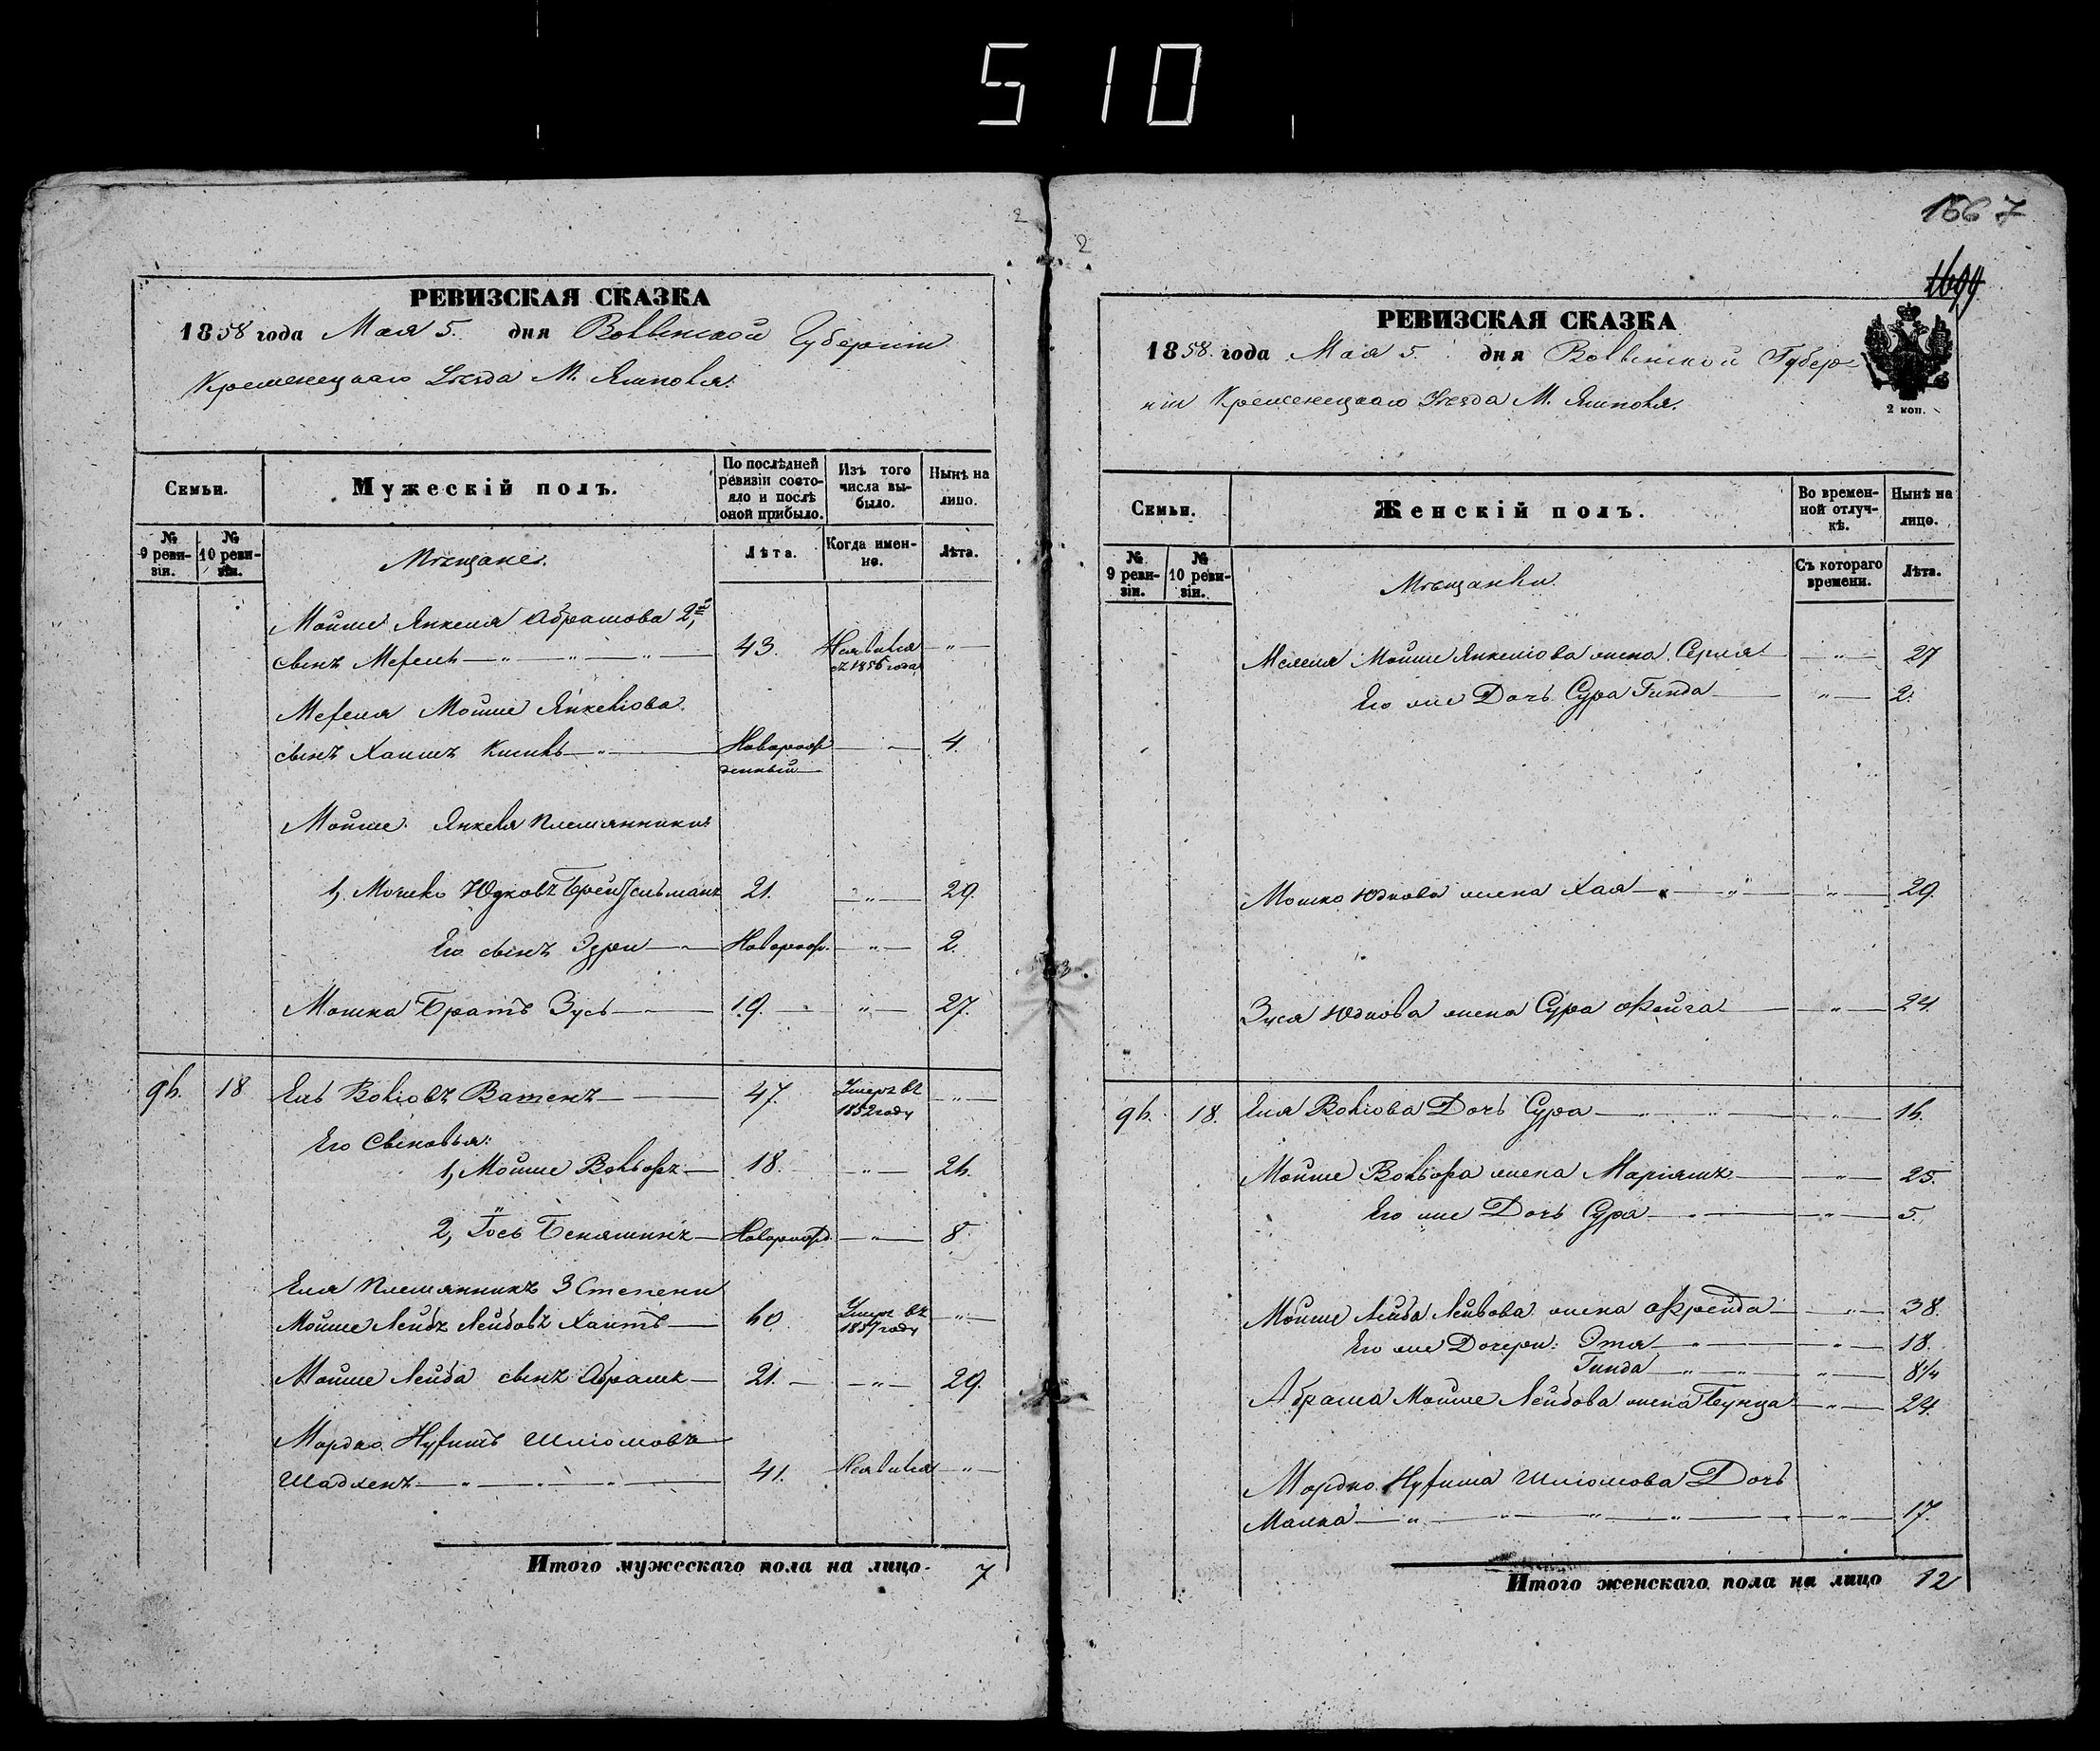 510
2
РЕВИЗСКАЯ СКАЗКА
1858 года Мая 5. дня Волынской Губернiи
Кременецкаго Уезда М. Ямполя.
Семьи.
Мужескiй полъ.
По послѣдней ревизiи состо-
яло и послѣ
оной прибыло.
Изъ того
числа вы-
было.
Нынѣ на
лицо.
№ 9 реви-
зiи.
№ 10 реви-
зiи.
Мѣщане.
Лѣта.
Когда имен-
но.
Лѣта.
Мойше Янкеля Абрамова 2й,
сынъ Мехель — " — " — " — 43. Неявился
съ 1856 года — " —
Мехеля Мойше Янкеліова.
сынъ Хаимъ Кисиль — " — Новорож
денный — 4.
Мойше Янкеля племянники:
1, Мошко Юдковъ 21. — " — 29.
Его сынъ Эзри — Новорож. — " — 2.
Мошка братъ Зусь — 19. — " — 27.
96. 18 Ель Воліовъ Ватенъ — 47. Умеръ въ
1852 году — " —
Его Сыновья:
1, Мойше Вольфъ — 18. — " — 26.
2, Іось Беняминъ — Новорожд. — " — 8
Еля племянникъ 3 степени
Мойше Лейбъ Лейбовъ Хаитъ — 60. Умеръ въ
1857 году — " —
Мойше Лейба сынъ Абрамъ — 21. — " — 29.
Мордко Нухимъ Шліомовъ
Шадхенъ — " — " — " — 41. Неявился — " —
Итого мужескаго пола на лицо. 7
1667
1694
2
РЕВИЗСКАЯ СКАЗКА
1858. года Мая 5. дня Волынской Губер-
нiи Кременецкаго Уезда М. Ямполя.
2 коп.
Семьи.
Женскiй полъ.
Во времен-
ной отлуч-
кѣ.
Нынѣ на
лицо.
№ 9 реви-
зiи.
№ 10 реви-
зiи.
Мѣщанки.
Съ котораго
времени.
Лѣта.
Мехеля Мойше Янкеліова жена Серля — " — 27
Его же Дочь Сура Гинда — " — 2.
Мошко Юдкова жена Хая — " — " — 29.
Зуся Юдкова жена Сура Фейга — " — 24.
96. 18. Еля Воліова Дочь Сура — " — " — " — 16.
Мойше Вольфа жена Маріямъ — " — 25.
Его же Дочь Сура — " — " — 5.
Мойше Лейба Лейбова жена Фрейда — " — 38.
Его же Дочери: Эта — " — " — 18.
Гинда — " — " — " — 8 1/4
Абрама Мойше Лейбова жена — " — 24.
Мордко Нухима Шліомова Дочь
Малка — " — " — " — " — " — 17.
Итого женскаго пола на лицо 12